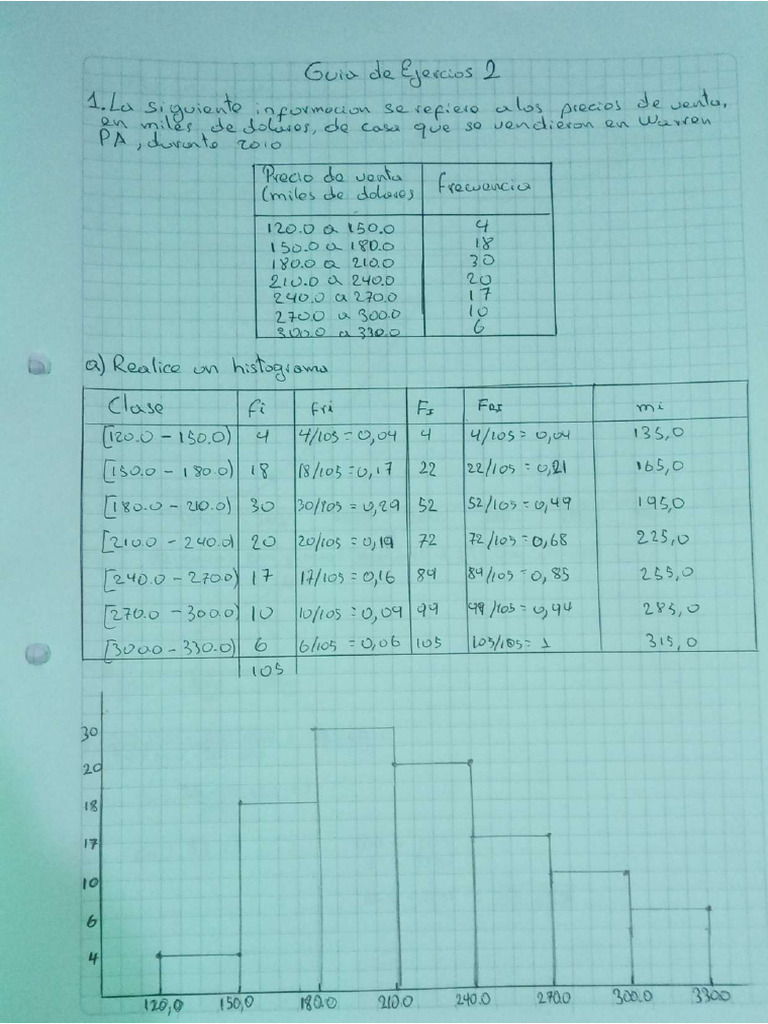 Guia de Ejercios 2
1. La siguiente informacion se refiere a los precios de venta,
en miles de dolares, de casa que se vendieron en Warren
PA, durante 2010
Precio de venta (miles de dolares) Frecuencia
120.0 a 150.0 4
150.0 a 180.0 18
180.0 a 210.0 30
210.0 a 240.0 20
240.0 a 270.0 17
270.0 a 300.0 10
300.0 a 330.0 6
a) Realice un histograma
Clase fi fri Fs Fas mi
[120.0 - 150.0) 4 4/105 = 0,04 4 4/105 = 0,04 135,0
[150.0 - 180.0) 18 18/105 = 0,17 22 22/105 = 0,21 165,0
[180.0 - 210.0) 30 30/105 = 0,29 52 52/105 = 0,49 195,0
[210.0 - 240.0) 20 20/105 = 0,19 72 72/105 = 0,68 225,0
[240.0 - 270.0) 17 17/105 = 0,16 89 89/105 = 0,85 255,0
[270.0 - 300.0) 10 10/105 = 0,09 99 99/105 = 0,94 285,0
[300.0 - 330.0) 6 6/105 = 0,06 105 105/105 = 1 315,0
105
30
20
18
17
10
6
4
120,0 150,0 180.0 210.0 240.0 270.0 300.0 330.0